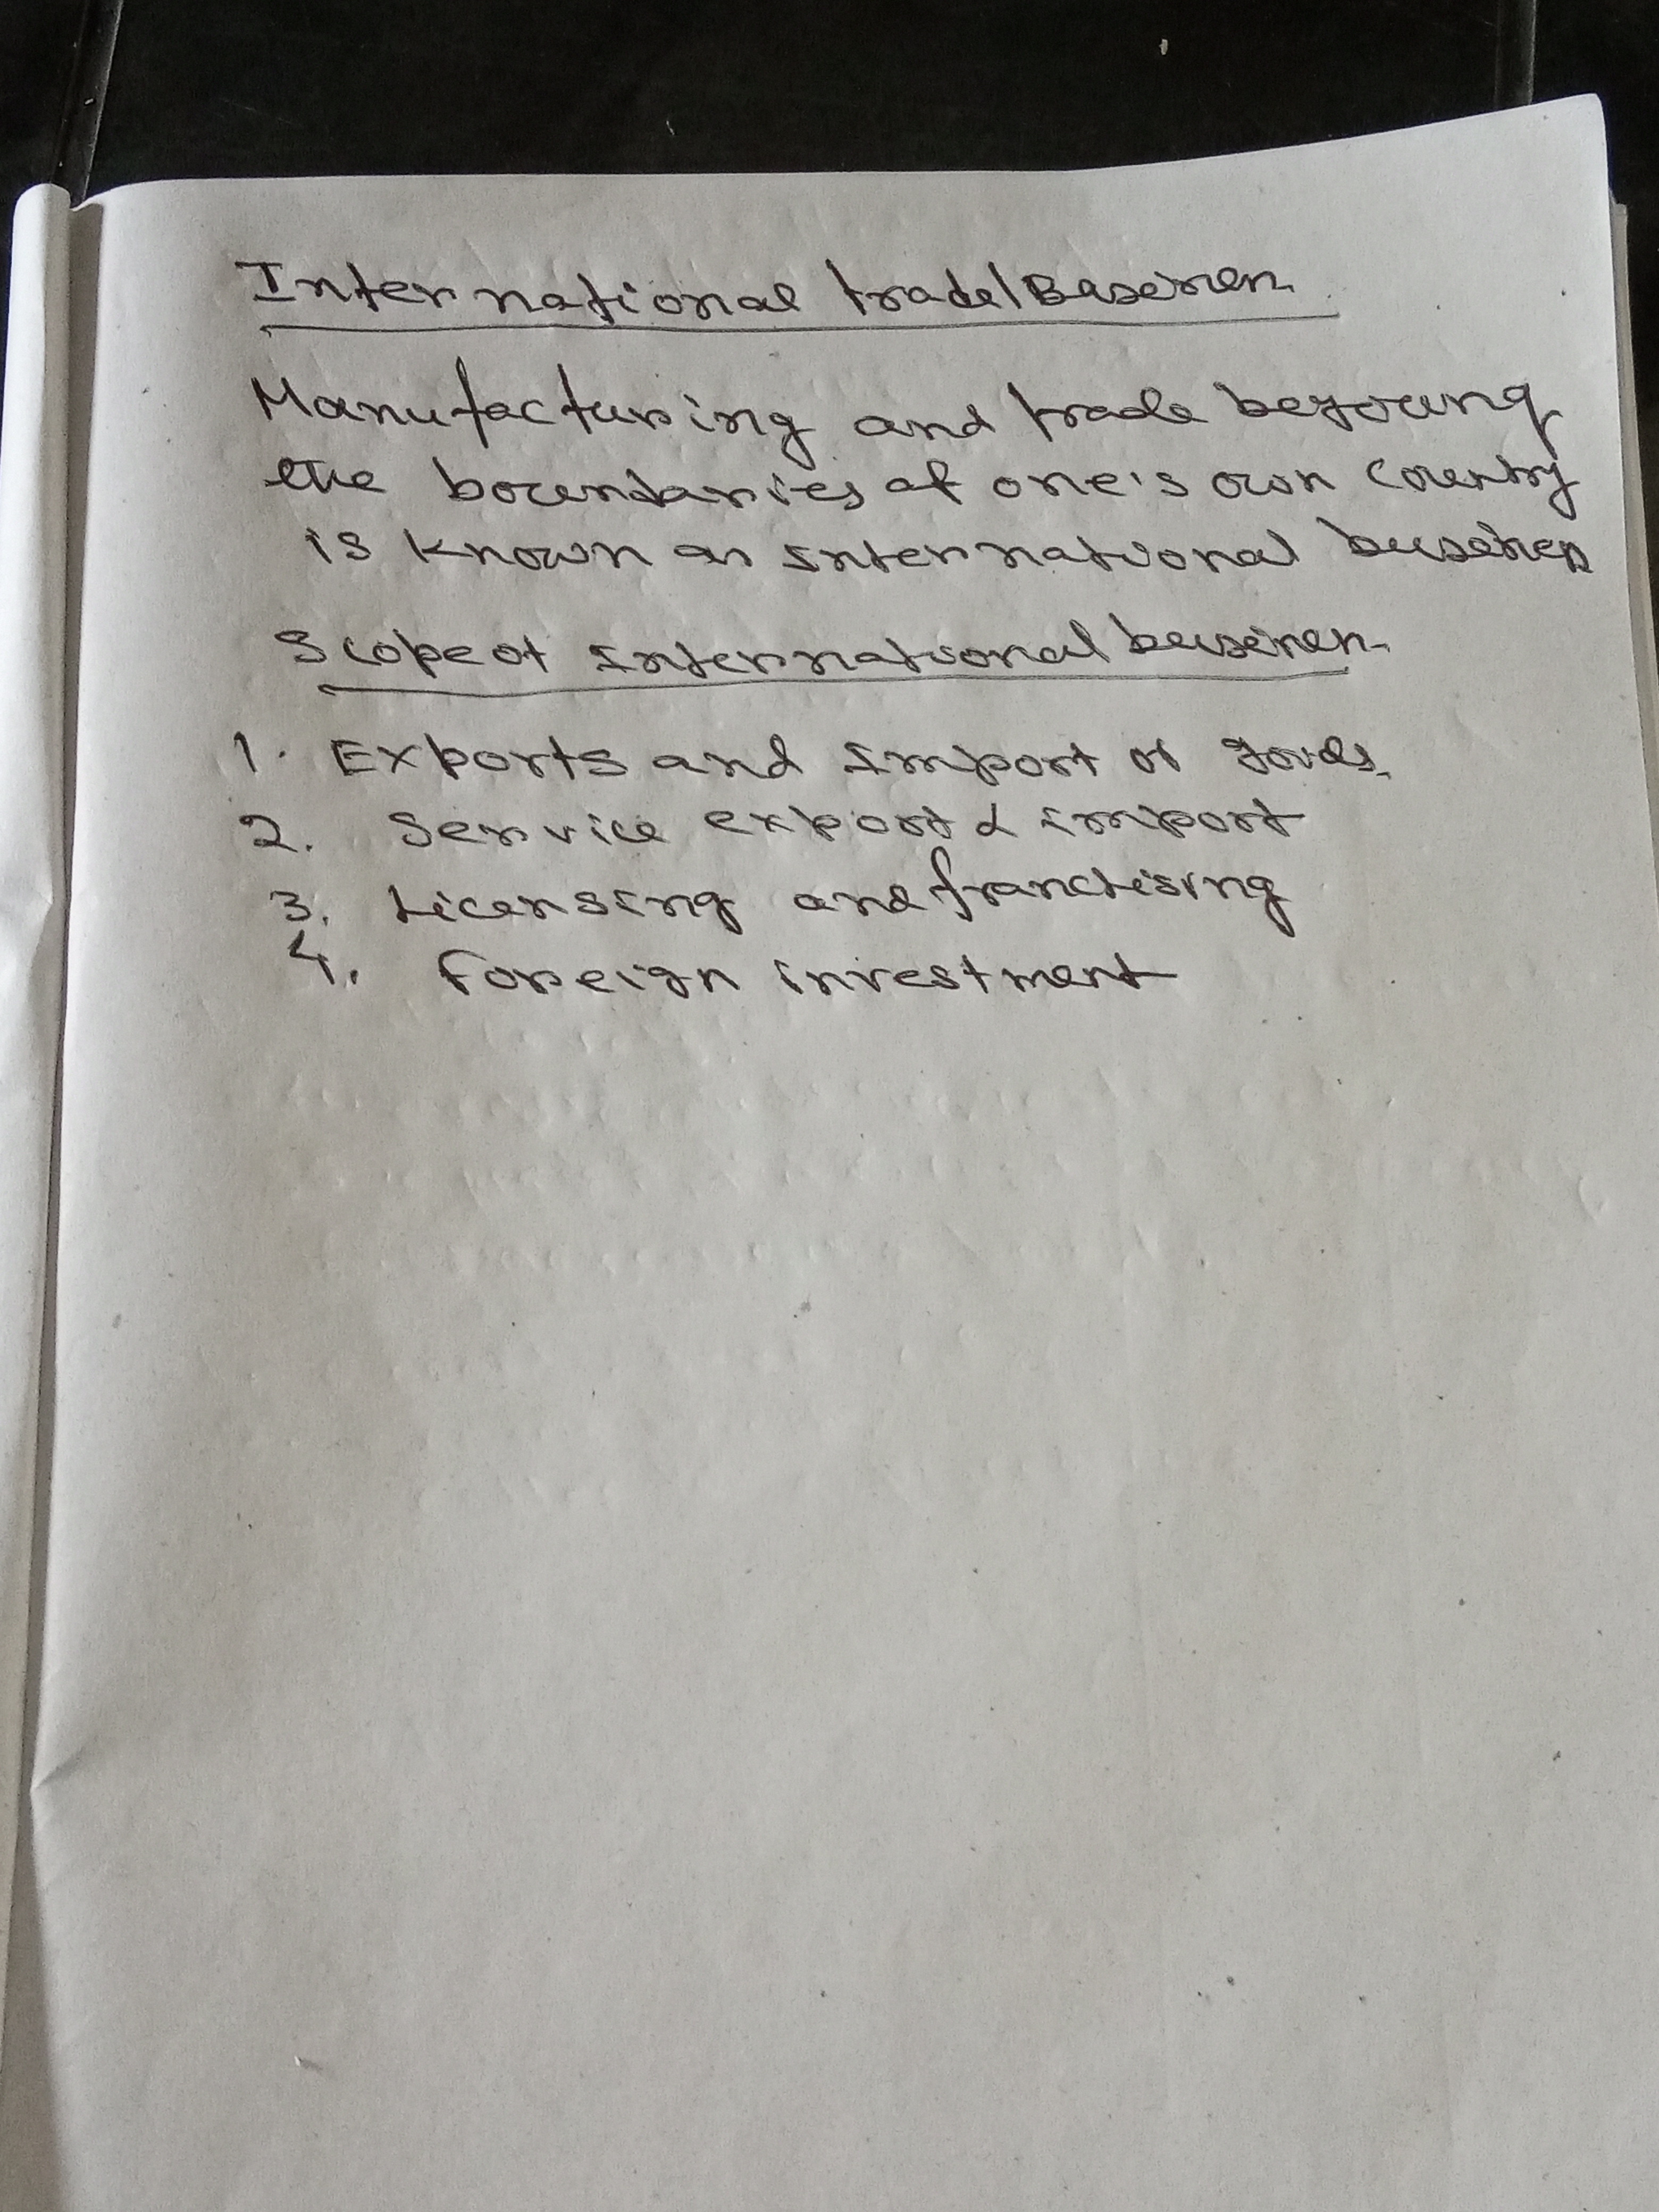 International trade/Business
Manufacturing and trade beyoung
the boundaries of one's own country
is known as international business
Scope of international business
1. Exports and import of goods.
2. Service export & import
3. Licensing and franchising
4. Foreign investment